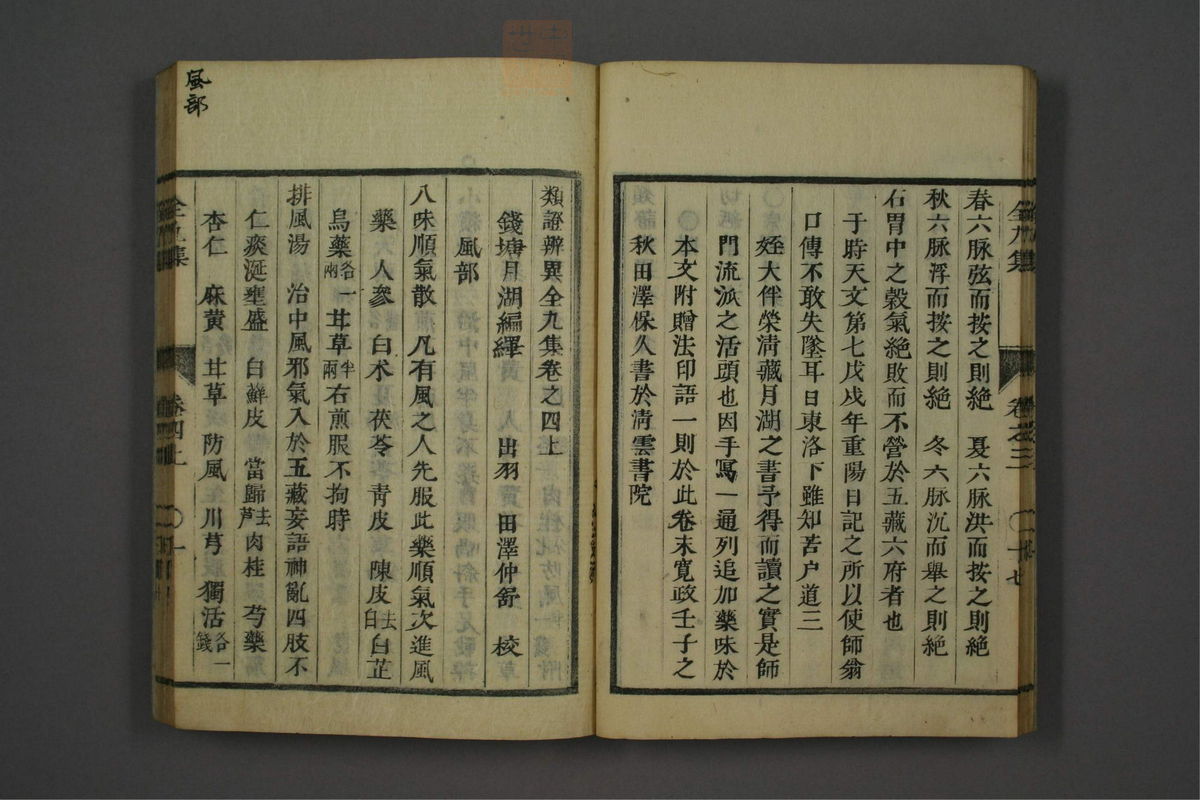 春六脉弦而按之則絶　夏六脉洪而按之則絶
秋六脉浮而按之則絶　冬六脉沉而舉之則絶
右胃中之穀氣絶敗而不營於五藏六府者也
于時天文第七戊戌年重陽日記之所以使師翁
口傳不敢失墜耳日東洛下雖知苦户道三
姪大伴榮淸藏月湖之書予得而讀之實是師
門流泒之活頭也因手冩一通列追加藥味於
本文附贈法印語一則於此卷末寛政壬子之
秋田澤保久書於淸雲書院
類證辨異全九集卷之四上
錢塘月湖編繹　出羽　田澤仲舒　校
風部
八味順氣散　凡有風之人先服此藥順氣次進風
藥　人參　白朮　茯苓　靑皮　陳皮去白　白芷
烏藥各一兩　甘草半兩　右煎服不拘時
排風湯　治中風邪氣入於五藏妄語神亂四肢不
仁痰涎壅盛　白鮮皮　當歸去芦　肉桂　芍藥
杏仁　麻黄　甘草　防風　川芎　獨活各一錢
風部
全九集　卷之三　二十七
全九集　卷四上　一